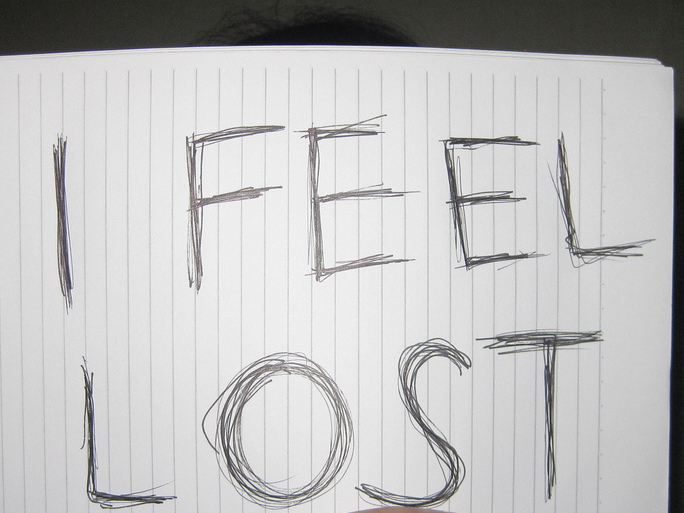 I FEEL
LOST